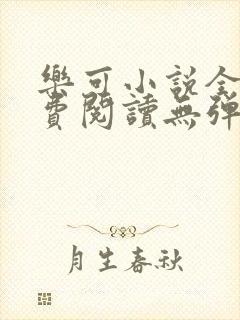 樂可小說全
費閱讀無彈
月生春秋